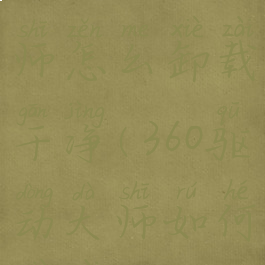 shī zěn me xiè zài
师怎么卸载
gān jìng qū
干净(360驱
dòng dà shī rú hé
动大师如何